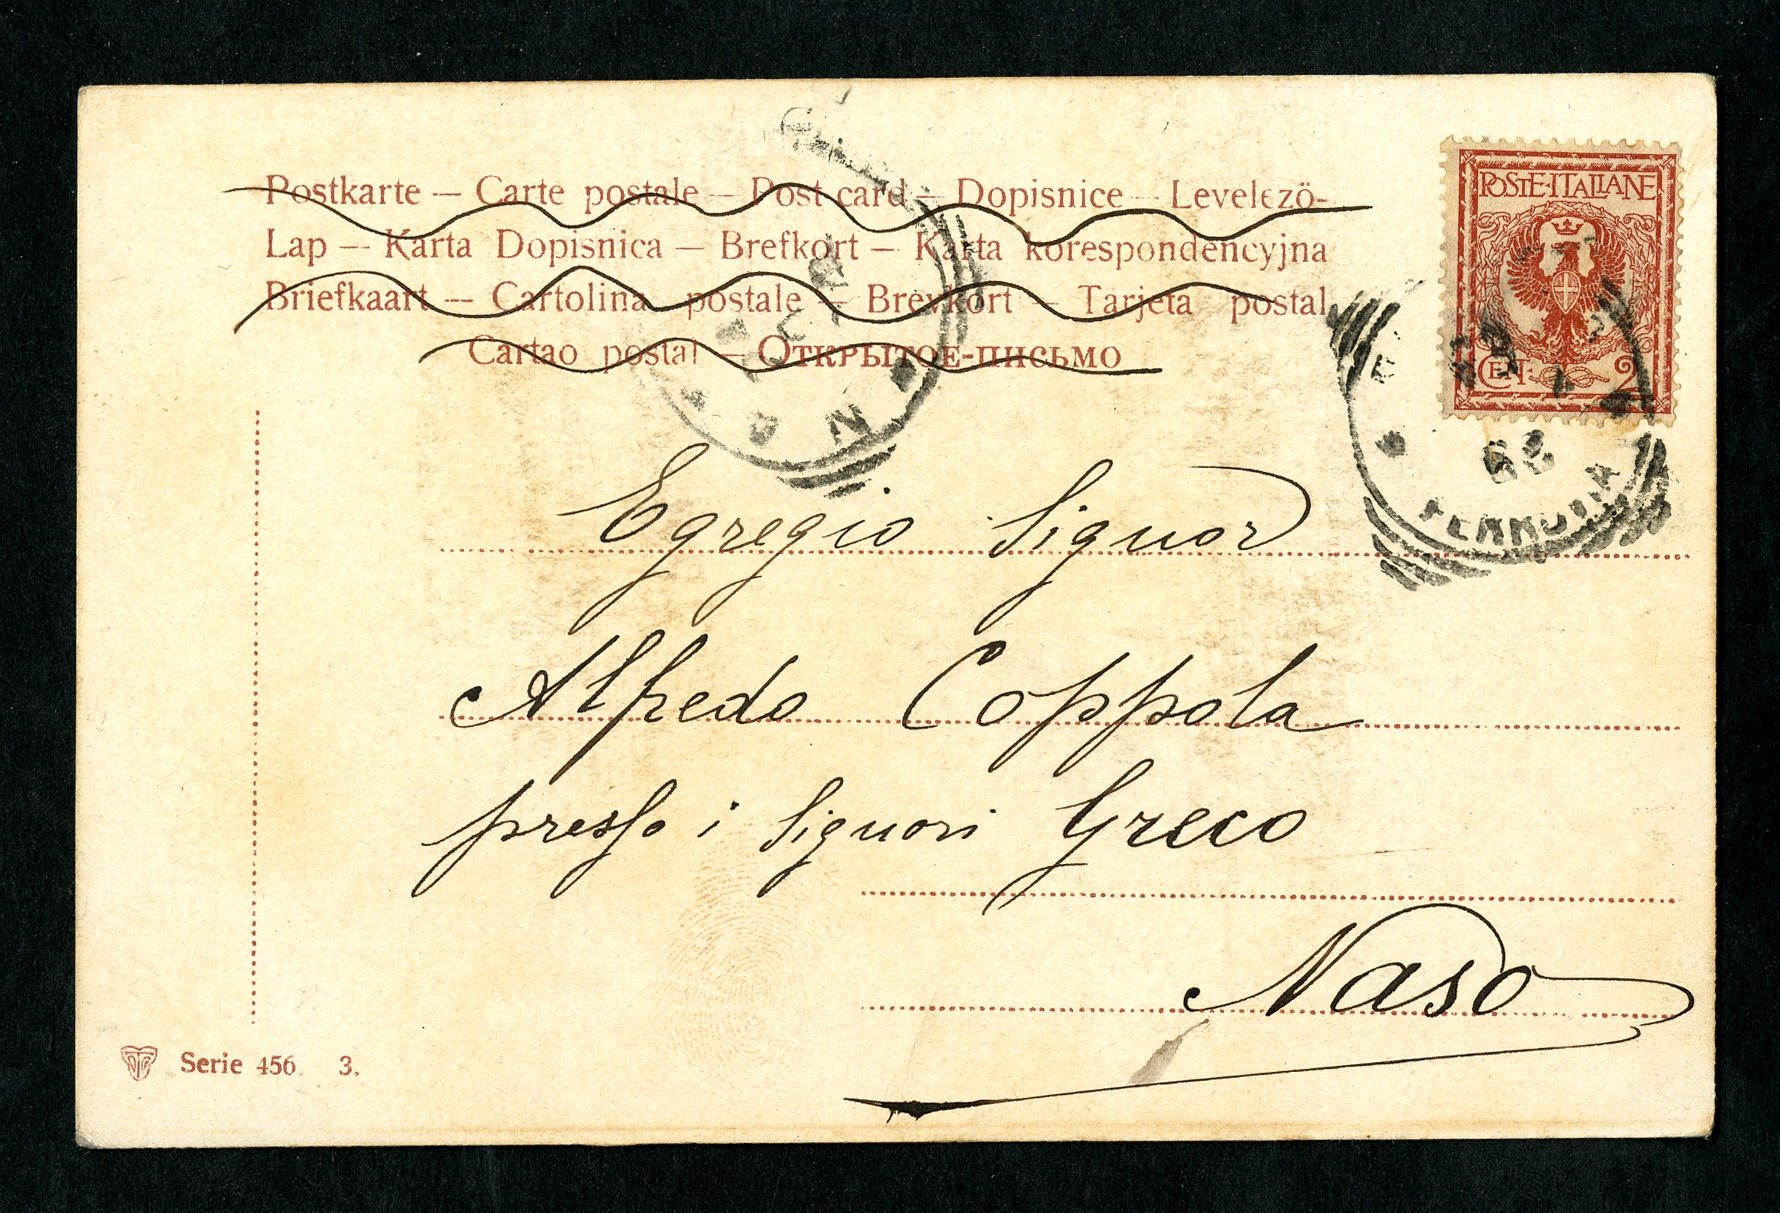 Postkarte — Carte postale — Post card — Dopisnice — Levelező-
Lap — Karta Dopisnica — Brefkort — Karta korespondencyjna
Briefkaart — Cartolina postale — Brevkort — Tarjeta postal
Cartao postal — Открытое-письмо
POSTE·ITALIANE
CENT. 2
FERROVIA
Egregio Signor
Alfredo Coppola
presso i Signori Greco
Naso
Serie 456 3.